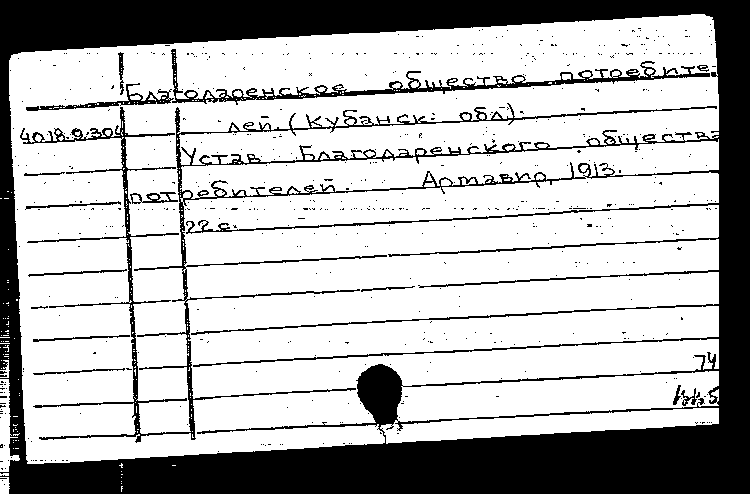 Благодаренское общество потребите-
лей. (Кубанск. обл).
40 18.9.304
Устав Благодаренского общества
потребителей. Армавир, 1913.
22 с.
74